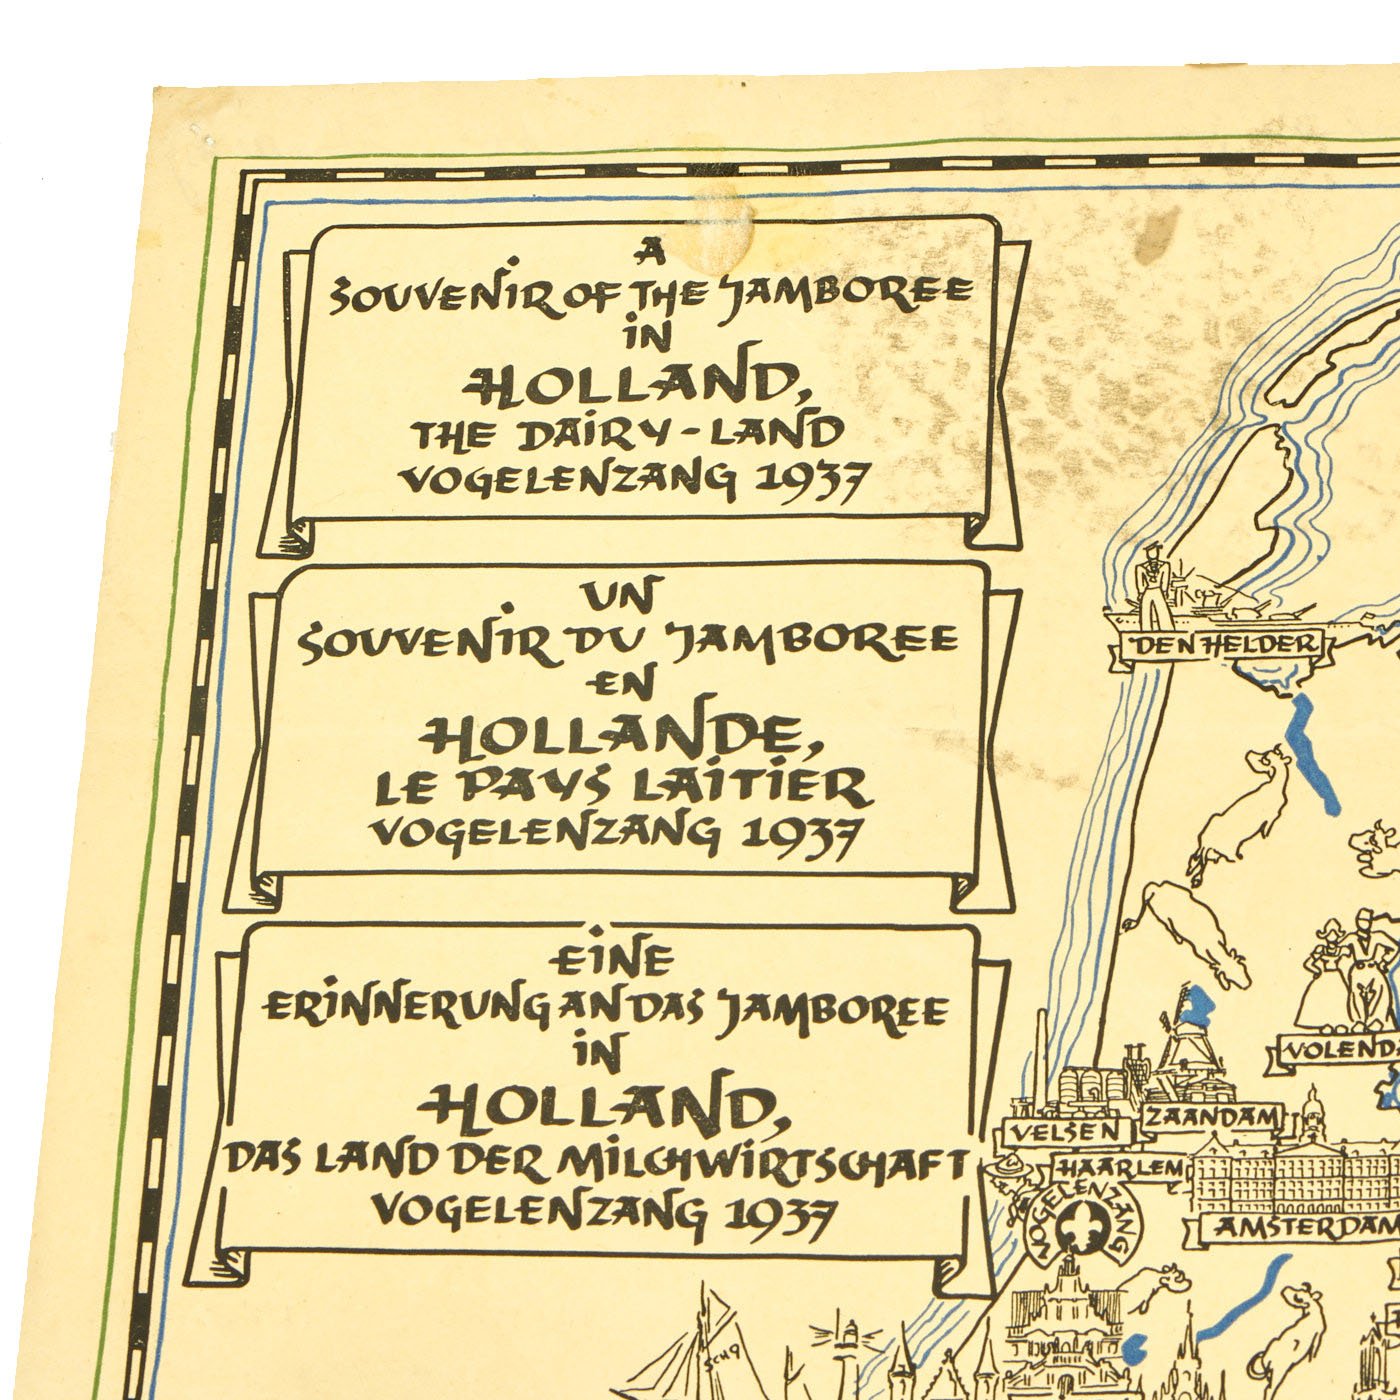 A
SOUVENIR OF THE JAMBOREE
IN
HOLLAND,
THE DAIRY-LAND
VOGELENZANG 1937
UN
SOUVENIR DU JAMBOREE
EN
HOLLANDE,
LE PAYS LAITIER
VOGELENZANG 1937
EINE
ERINNERUNG AN DAS JAMBOREE
IN
HOLLAND,
DAS LAND DER MILCHWIRTSCHAFT
VOGELENZANG 1937
DEN HELDER
VOLENDA
VELSEN
ZAANDAM
HAARLEM
VOGELENZANG
AMSTERDAM
SCH9